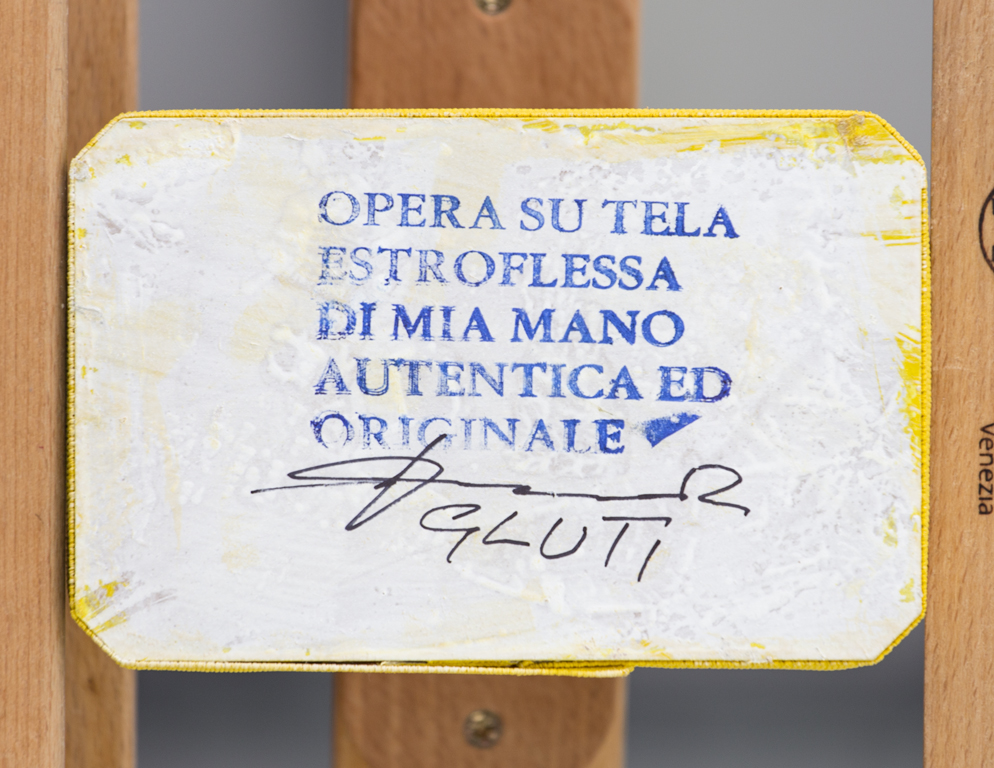 OPERA SU TELA
ESTROFLESSA
DI MIA MANO
AUTENTICA ED
ORIGINALE
GLUTI
Venezia